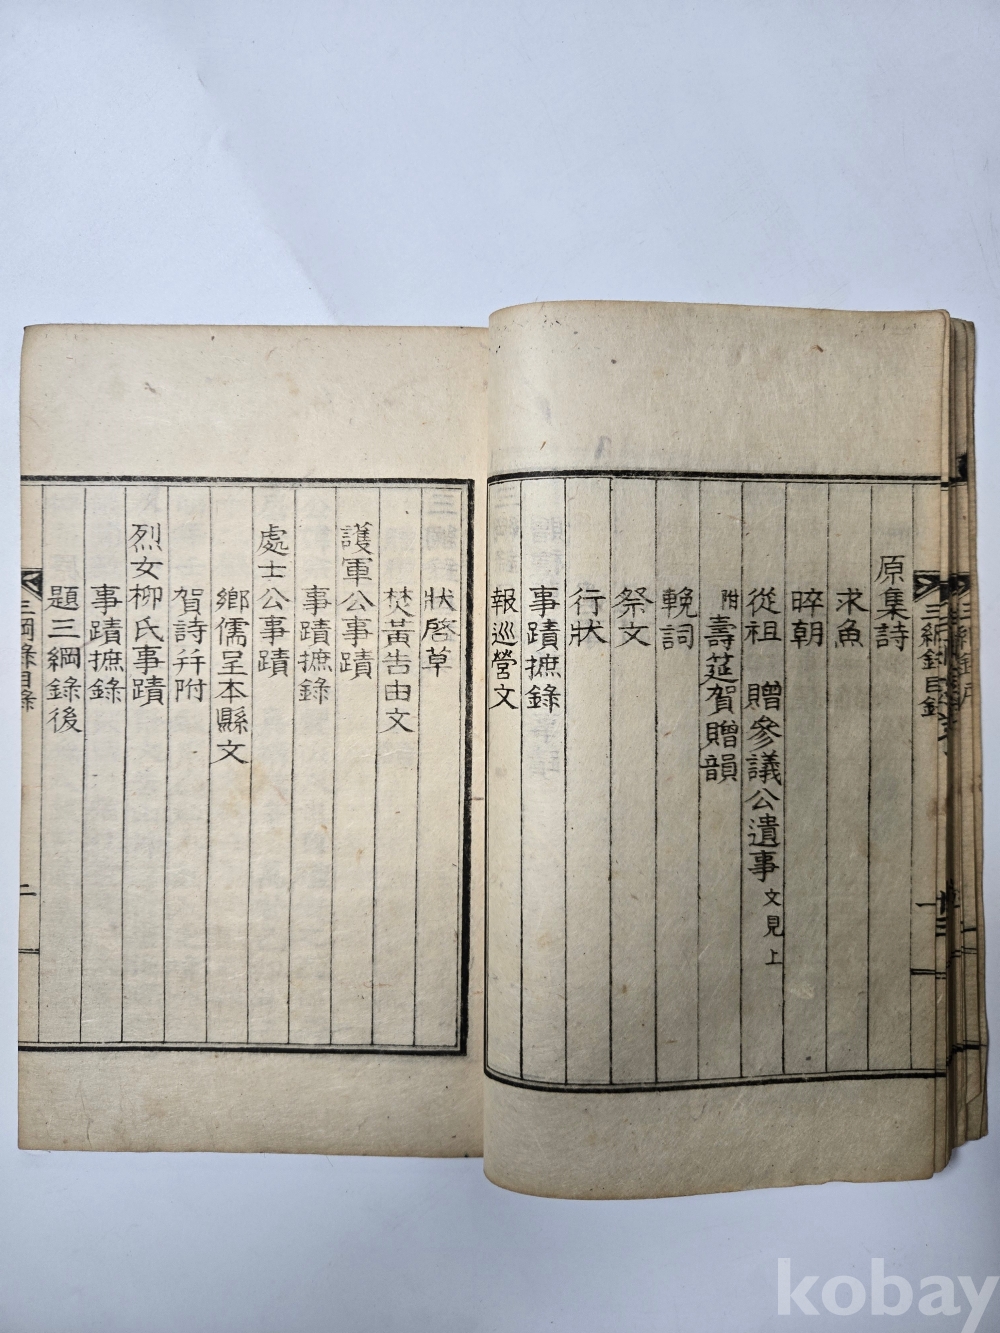 原集詩
求魚
晬朝
從祖 贈參議公遺事 文見上
附 壽莚賀贈韻
輓詞
祭文
行狀
事蹟摭錄
報巡營文
狀啓草
焚黃告由文
護軍公事蹟
事蹟摭錄
處士公事蹟
鄉儒呈本縣文
賀詩幷附
烈女柳氏事蹟
事蹟摭錄
題三綱錄後
三綱錄目錄
二
三綱錄目錄
一
kobay